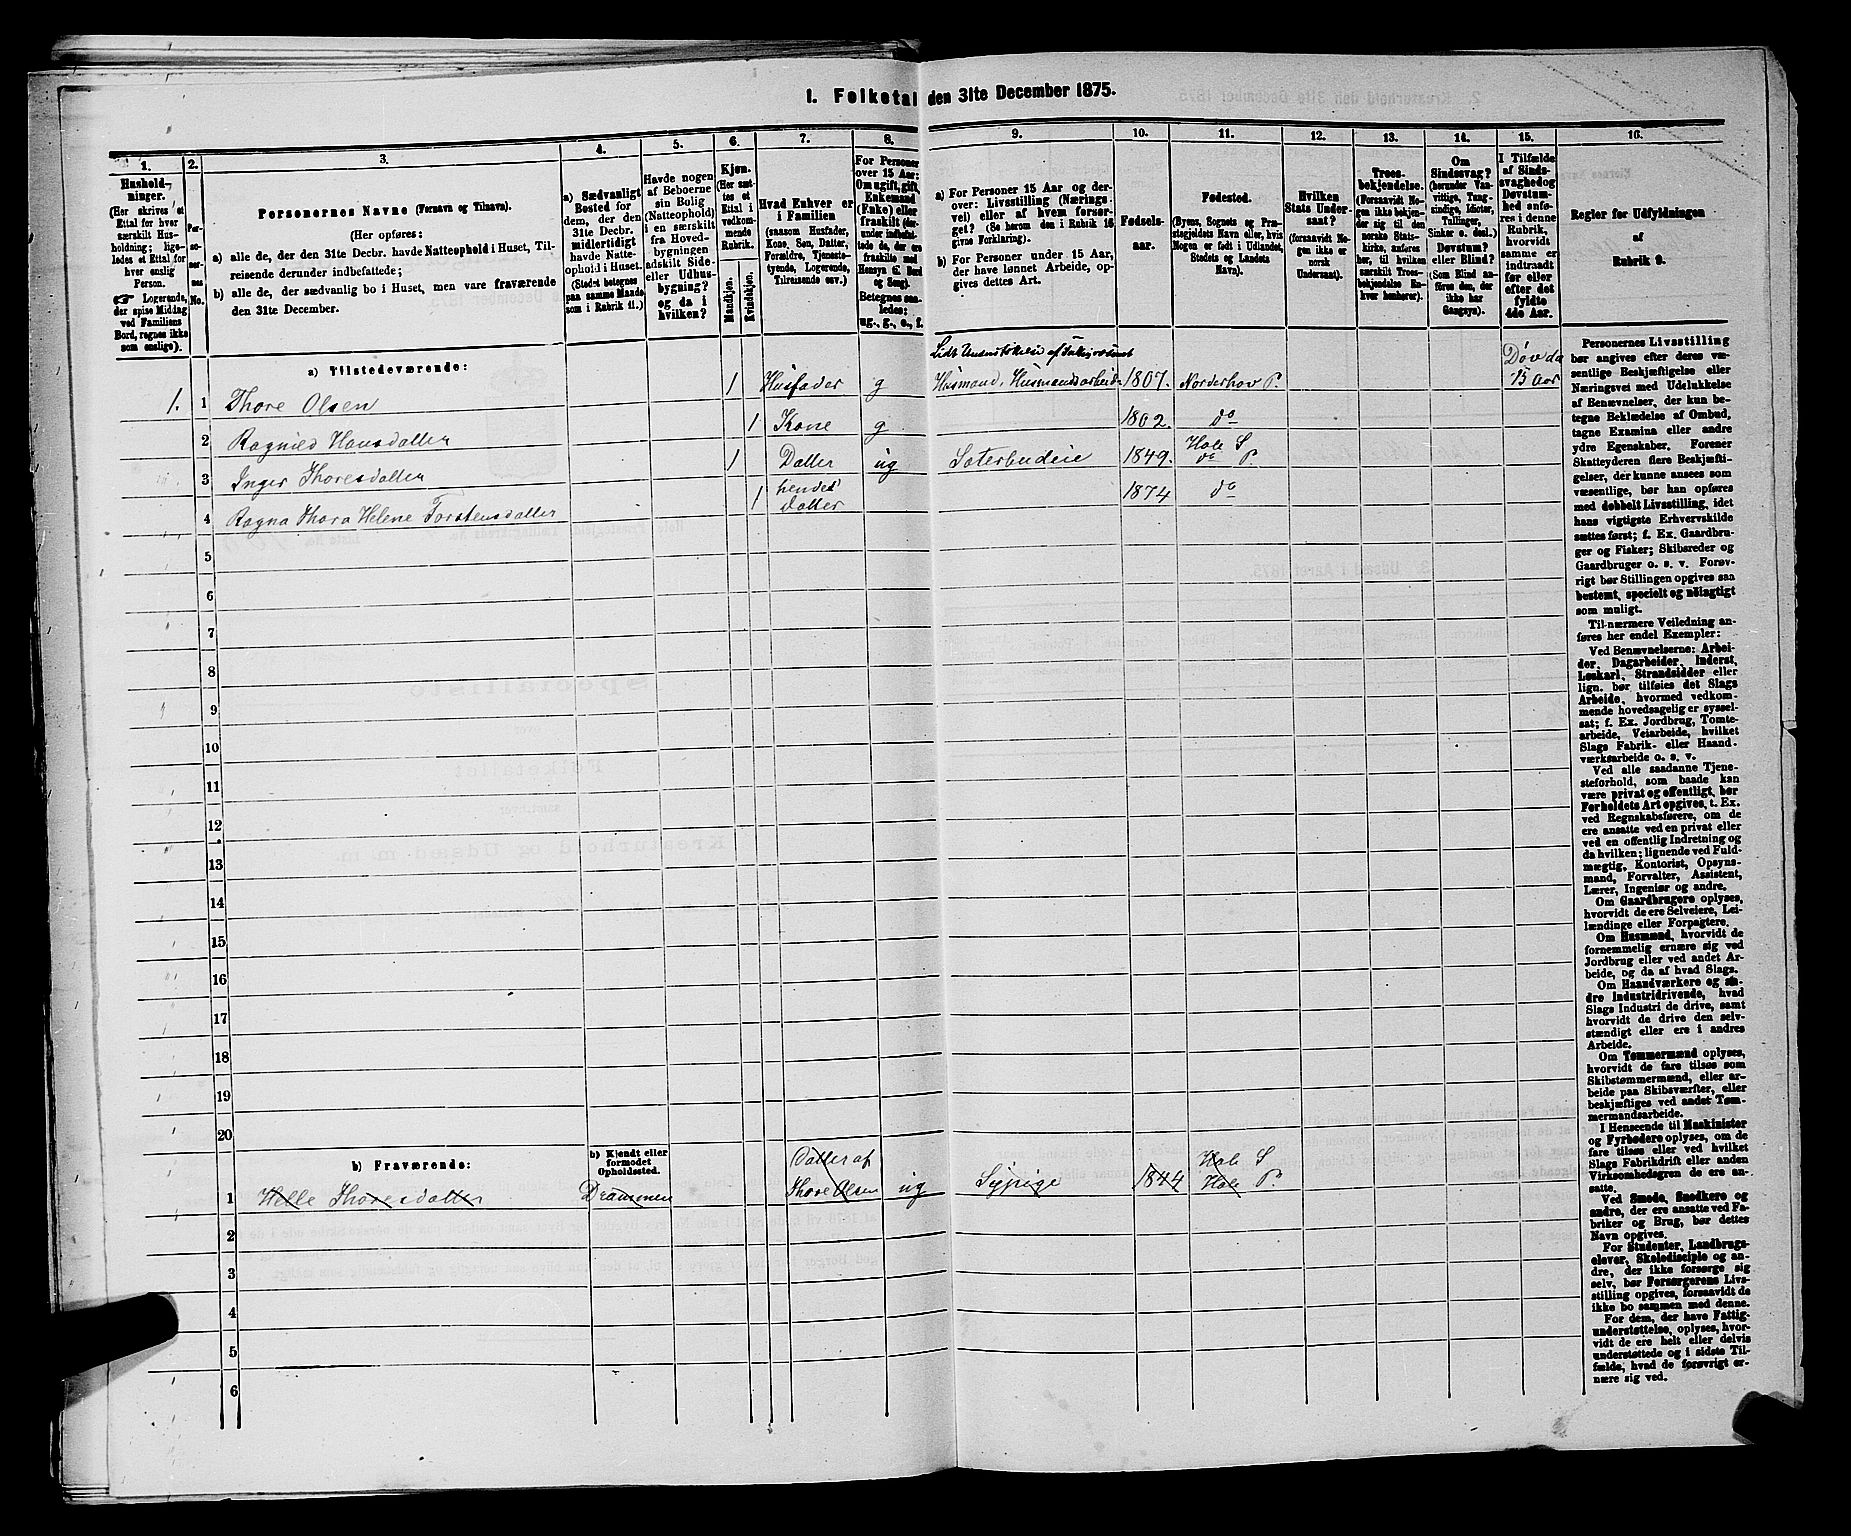 1. Folketal den 31te December 1875.
1.
2.
3.
4.
5.
6.
7.
8.
9.
10.
11.
12.
13.
14.
15.
16.
Hushold-
ninger.
(Her skrives et
Ettal for hver
særskilt Hus-
holdning; lige-
ledes et Ettal for
hver enslig
Person.
☞ Logerende,
der spise Middag
ved Familiens
Bord, regnes ikke
som enslige).
Per-
so-
ner-
nes
No.
Personernes Navne (Fornavn og Tilnavn).
(Her opføres:
a) alle de, der den 31te Decbr. havde Natteophold i Huset, Til-
reisende derunder indbefattede;
b) alle de, der sædvanlig bo i Huset, men vare fraværende
den 31te December.
a) Sædvanligt
Bosted for
dem, der den
31te Decbr.
midlertidigt
havde Natte-
ophold i Huset.
(Stedet betegnes
paa samme Maade
som i Rubrik 11.)
Havde nogen
af Beboerne
sin Bolig
(Natteophold)
i en særskilt
fra Hoved-
bygningen
adskilt Side-
eller Udhus-
bygning?
og da i
hvilken?
Kjøn.
(Her sæt-
tes et
Ettal i
vedkom-
mende
Rubrik.
Mandkjøn.
Kvindekjøn.
Hvad Enhver er
i Familien
(saasom Husfader,
Kone, Søn, Datter,
Forældre, Tjeneste-
tyende, Logerende,
Tilreisende osv.)
For Personer
over 15 Aar:
Om ugift, gift,
Enkemand
(Enke) eller
fraskilt (der-
under indbefat-
tede de, der ere
fraskilte med
Hensyn til Bord
og Seng).
Betegnes saa-
ledes:
ug., g., e., f.
a) For Personer 15 Aar og der-
over: Livsstilling (Nærings-
vei) eller af hvem forsør-
get? (Se herom den i Rubrik 16
givne Forklaring).
b) For Personer under 15 Aar,
der have lønnet Arbeide, op-
gives dettes Art.
Fødsels-
aar.
Fødested.
(Byens, Sognets og Præ-
stegjeldets Navn eller, hvis
Nogen er født i Udlandet,
Stedets og Landets
Navn).
Hvilken
Stats Under-
saat?
(forsaavidt No-
gen ikke er
norsk
Undersaat).
Troes-
bekjendelse.
(Forsaavidt No-
gen ikke bekjen-
der sig til den
norske Stats-
kirke, anføres
her, til hvilken
særskilt Troes-
bekjendelse En-
hver henhører).
Om
Sindssvag?
(herunder Van-
vittige, Tung-
sindige, Idioter,
Tullinger,
Sinker o. desl.)
Døvstum?
eller Blind?
(Som Blind an-
føres den, der
ikke har
Gangsyn).
I Tilfælde
af Sinds-
svaghed og
Døvstum-
hed anfø-
res i denne
Rubrik,
hvorvidt
samme er
indtraadt
før eller
efter det
fyldte
4de Aar.
Regler for Udfyldningen
af
Rubrik 9.
a) Tilstedeværende:
Lidt Understøttelse af Fattigvæsenet
1. 1 Thore Olsen 1 Husfader g Husmand, Husmandsarbeide 1807. Norderhov P. Døv da 15 Aar
2 Ragnild Hansdatter 1 Kone g 1802. do
3 Inger Thoresdatter 1 Datter ug Sæterbudeie 1849. Hole S do P.
4 Ragna Thora Helene Torstensdatter 1 hendes Datter 1874 do
5
6
7
8
9
10
11
12
13
14
15
16
17
18
19
20
b) Fraværende:
b) Kjendt eller
formodet
Opholdssted.
1 Helle Thoresdatter Drammen Datter af Thore Olsen ug Sypige 1844 Hole S Hole P.
2
3
4
5
6
Personernes Livsstilling
bør angives efter deres væ-
sentlige Beskjæftigelse eller
Næringsvei med Udelukkelse
af Benævnelser, der kun be-
tegne Beklædelse af Ombud,
tagne Examina eller andre
ydre Egenskaber. Forener
Skatteyderen flere Beskjæfti-
gelser, der kunne ansees som
væsentlige, bør han opføres
med dobbelt Livsstilling, idet
hans vigtigste Erhvervskilde
sættes først; f. Ex. Gaardbru-
ger og Fisker; Skibsreder og
Gaardbruger o. s. v. Forøv-
rigt bør Stillingen opgives saa
bestemt, specielt og nøiagtigt
som muligt.
Til nærmere Veiledning an-
føres her endel Exempler:
Ved Benævnelserne: Arbei-
der, Dagarbeider, Inderst,
Løskarl, Strandsidder eller
lign. bør tilføies det Slags
Arbeide, hvormed vedkom-
mende hovedsagelig er syssel-
sat; f. Ex. Jordbrug, Tomte-
arbeide, Veiarbeide, hvilket
Slags Fabrik- eller Haand-
værksarbeide o. s. v.
Ved alle saadanne Tjene-
steforhold, som baade kan
være privat og offentligt, bør
Forholdets Art opgives, t. Ex.
ved Regnskabsførere, om de
ere ansatte ved en privat eller
ved en offentlig Indretning og
da hvilken; lignende ved Fuld-
mægtig, Kontorist, Opsyns-
mand, Forvalter, Assistent,
Lærer, Ingeniør og andre.
Om Gaardbrugere oplyses,
hvorvidt de ere Selveiere, Lei-
lændinge eller Forpagtere.
Om Husmænd, hvorvidt de
fornemmelig ernære sig ved
Jordbrug eller ved andet Ar-
beide, og da af hvad Slags.
Om Haandværkere og an-
dre Industridrivende, hvad
Slags Industri de drive, samt
hvorvidt de drive den selv-
stændigt eller ere i andres
Arbeide.
Om Tømmermænd oplyses,
hvorvidt de fare tilsøs som
Skibstømmermænd, eller ar-
beide paa Skibsværfter, eller
beskjæftiges ved andet Tøm-
mermandsarbeide.
I Henseende til Maskinister
og Fyrbødere oplyses, om de
fare tilsøs eller ved hvilket
Slags Fabrikdrift eller anden
Virksomhedsgren de ere an-
satte.
Ved Smede, Snedkere og
andre, der ere ansatte ved Fa-
briker og Brug, bør dettes
Navn opgives.
For Studenter, Landbrugs-
elever, Skoledisciple og an-
dre, der ikke forsørge sig
selv, bør Forsørgerens Livs-
stilling opgives, forsaavidt de
ikke bo sammen med denne.
For dem, der have Fattig-
understøttelse, oplyses, hvor-
vidt de ere helt eller delvis
understøttede og i sidste Til-
fælde, hvad de forøvrigt er-
nære sig ved.